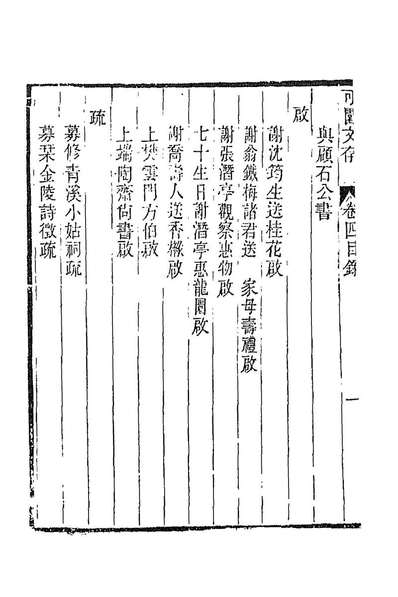 可園文存
卷四目錄
一
與顧石公書
啟
謝沈筠生送桂花啟
謝翁鐵梅諸君送 家母壽禮啟
謝張潛亭觀察惠物啟
七十生日謝潛亭惠龍圓啟
謝喬壽人送香櫞啟
上樊雲門方伯啟
上端陶齋尙書啟
疏
募修青溪小姑祠疏
募栞金陵詩徵疏